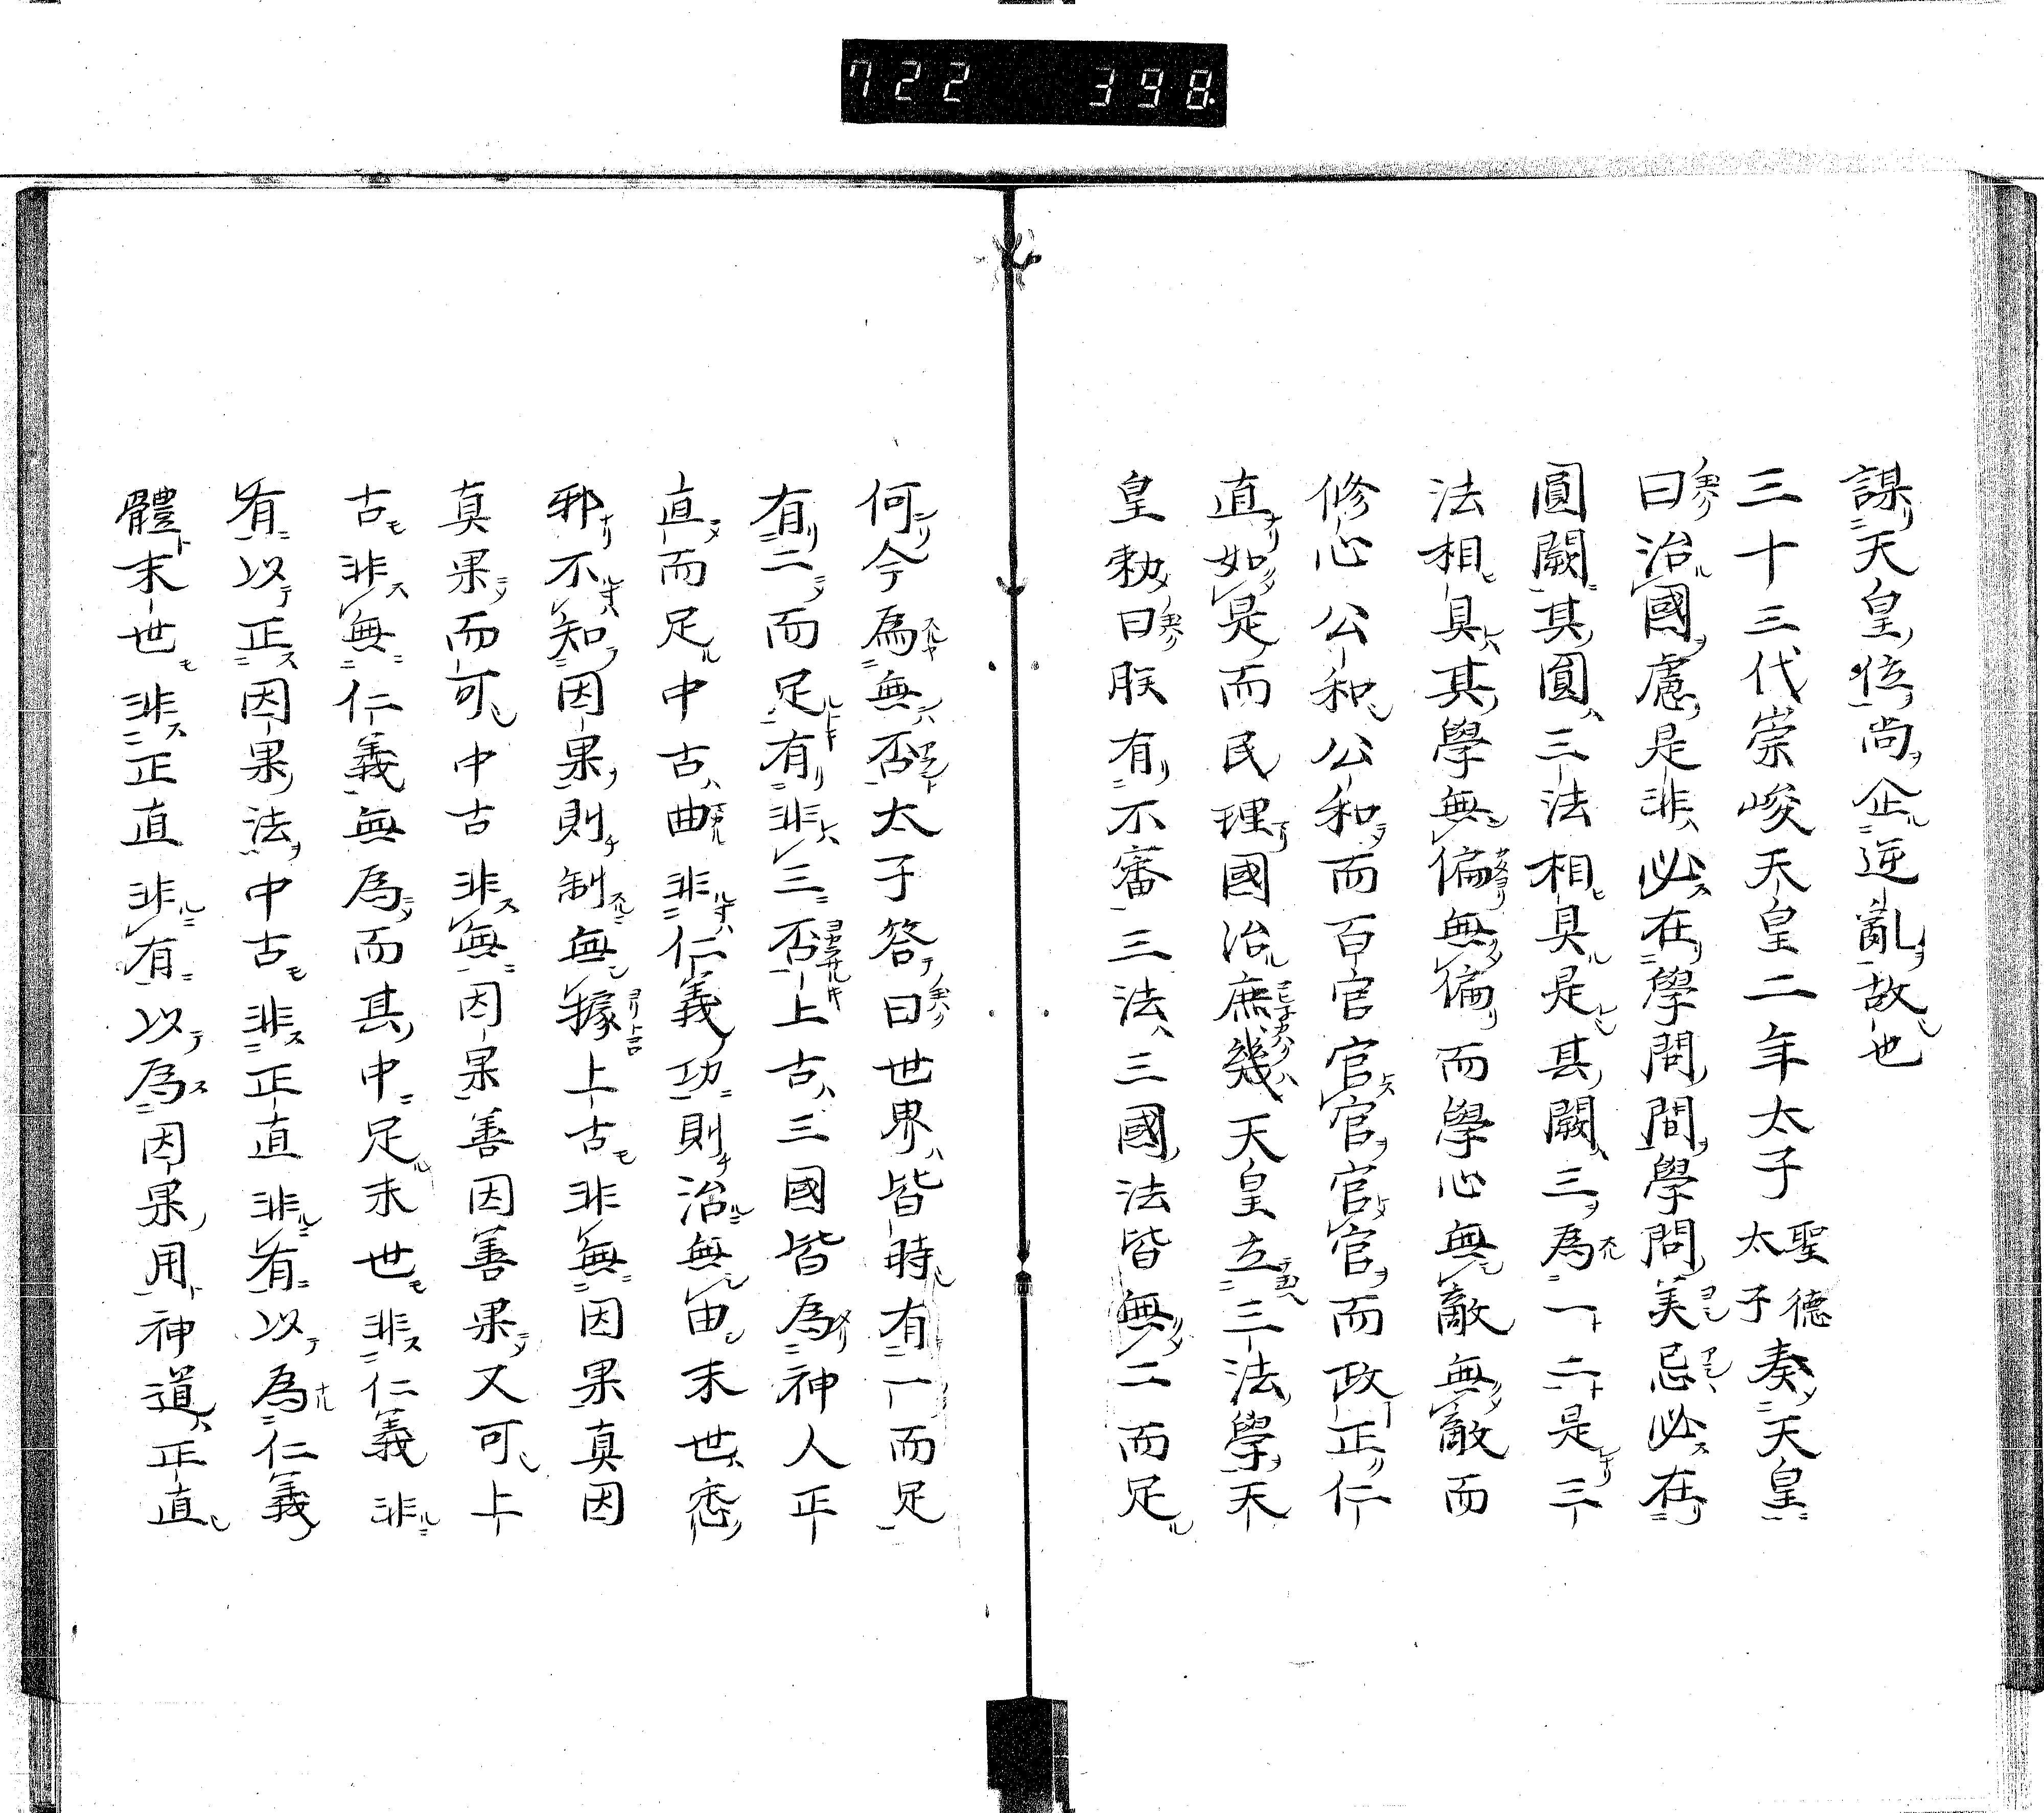 722 398
謀天皇位尚企逆亂故也
三十三代崇峻天皇二年太子聖德太子奏天皇
曰治國慮是非必在學問間學問美忌必在
圓闕其圓三法相具是其闕三為一二是三
法相具其學無偏無偏而學心無敵無敵而
修心公和公和而百官官官官官而政正仁
直如是而民理國治庶幾天皇立三法學天
皇勅曰朕有不審三法三國法皆無二而足
何今為無否太子答曰世界皆時有一而足
有二而足有非三否上古三國皆為神人正
直而足中古曲非仁義功則治無由末世悉
邪不知因果則制無據上古非無因果真因
真果而可中古非無因果善因善果又可上
古非無仁義無為而其中足末世非仁義非
有以正因果法中古非正直非有以為仁義
體末世非正直非有以為因果用神道正直